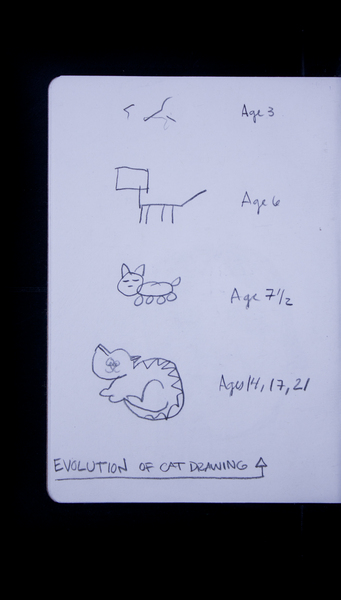 Age 3
Age 6
Age 7 1/2
Age 14, 17, 21
EVOLUTION OF CAT DRAWING